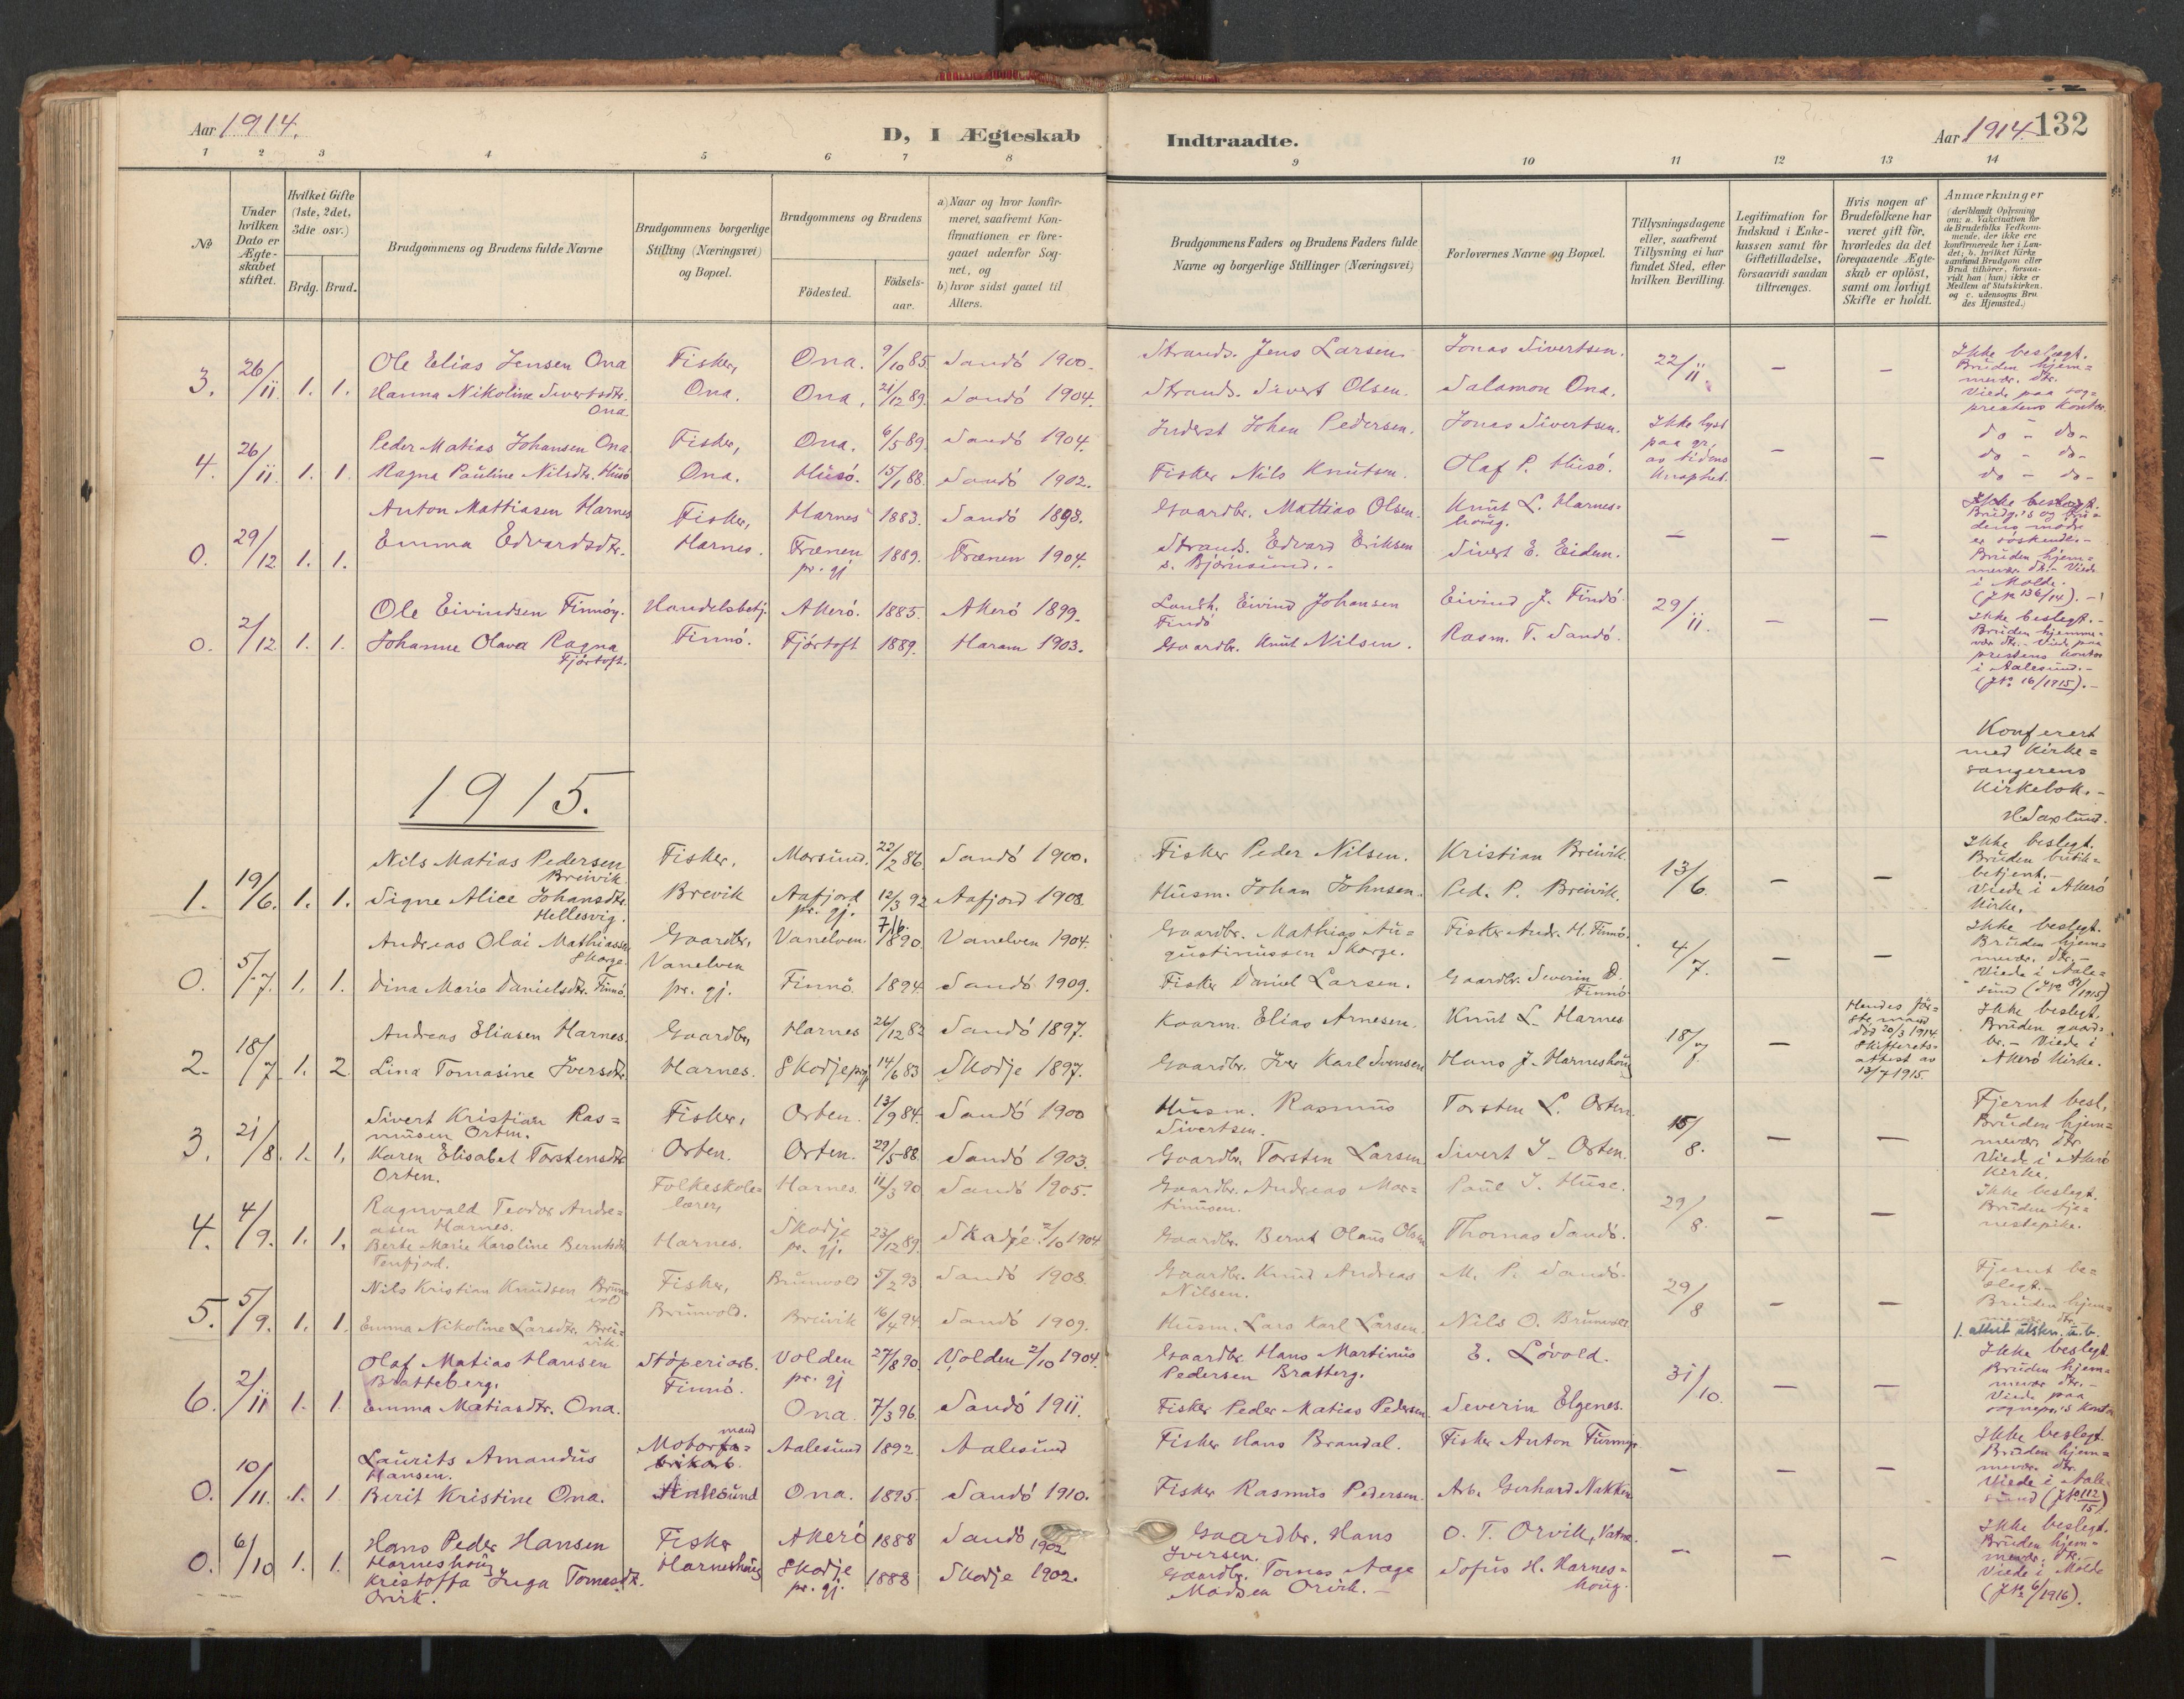 Aar 1914.
D, I Ægteskab
Indtraadte.
Aar 1914. 132
1 2 3 4 5 6 7 8 9 10 11 12 13 14
No
Under hvilken Dato er Ægteskabet stiftet.
Hvilket Gifte (1ste, 2det, 3die osv.)
Brdg. Brud.
Brudgommens og Brudens fulde Navne
Brudgommens borgerlige Stilling (Næringsvei) og Bopæl.
Brudgommens og Brudens
Födested.
Födselsaar.
a) Naar og hvor konfirmeret, saafremt Konfirmationen er foregaaet udenfor Sognet, og
b) hvor sidst gaaet til Alters.
Brudgommens Faders og Brudens Faders fulde Navne og borgerlige Stillinger (Næringsvei)
Forlovernes Navne og Bopæl.
Tillysningsdagene eller, saafremt Tillysning ei har fundet Sted, efter hvilken Bevilling.
Legitimation for Indskud i Enkekassen samt for Giftetilladelse, forsaavidt saadan tiltrænges.
Hvis nogen af Brudefolkene har været gift för, hvorledes da det foregaaende Ægteskab er oplöst, samt om lovligt Skifte er holdt.
Anmærkninger
(deriblandt Oplysning om: a. Vakcination for de Brudefolks Vedkommende, der ikke ere konfirmerede her i Landet; b. hvilket Kirkesamfund Brudgom eller Brud tilhörer, forsaavidt han (hun) ikke er Medlem af Statskirken. og c. udensogns Brudes Hjemsted.)
3. 26/11 1. 1. Ole Elias Jensen Ona Fisker, Ona. 9/10 85. Sandö 1900. Strands. Jens Larsen. Jonas Sivertsen. 22/11. – – Ikke beslægt.
Hanna Nikoline Sivertsdtr. Ona. Ona. Ona. 21/12 89. Sandö 1904. Strands. Sivert Olsen. Salamon Ona. Bruden hjemmevær. dtr. Viede paa sogneprestens kontor.
4. 26/11 1. 1. Peder Matias Johansen Ona Fisker, Ona. 6/5 89. Sandö 1904. Inderst Johan Pedersen. Jonas Sivertsen. Ikke lyst paa gr. av tidens knaphet. – – do – do –
Ragna Pauline Nilsdtr. Husö Ona. Husö. 15/1 88. Sandö 1902. Fisker Nils Knutsen. Olaf P. Husö. do – do –
do – do –
0. 29/12 1. 1. Anton Mattiasen Harnes Fisker, Harnes 1883. Sandö 1898. Gaardbr. Mattias Olsen. Knut L. Harneshoug. – – – Ikke beslægt.
Emma Edvardsdtr. Harnes. Frænen pr. gj 1889. Frænen 1904. Strands. Edvard Eriksen s. Björnsund. Sivert E. Eiden. Brudg.s og brudens mødr er søskende. – Bruden hjemmevær. dtr. – Viede i Molde. (J No 136/14). –
0. 2/12 1. 1. Ole Eivindsen Finnöy. Handelsbetj. Akerö. 1885. Akerö 1899. Landh. Eivind Johansen Findö Eivind J. Findö. 29/11. – – Ikke beslegt. –
Johanne Olava Ragna Fjörtoft. Finnö. Fjörtoft 1889. Haram 1903. Gaardbr. Knut Nilsen. Rasm. T. Sandö. Bruden hjemmevær. dtr. – Viede paa prestens kontor i Aalesund. – (J No 16/1915). –
Konferert med kirkesangerens kirkebok. –
1915.
1. 19/6. 1. 1. Nils Matias Pedersen Breivik Fisker, Morsund. 22/2 86. Sandö 1900. Fisker Peder Nilsen. Kristian Breivik. 13/6. – – Ikke beslegt.
Signe Alice Johansdtr. Hellesvig. Brevik Aafjord pr. gj. 12/3 92 Aafjord 1908. Husm. Johan Johnsen. Ped. P. Breivik. Bruden butikbetjent. – Viede i Akerö Kirke.
0. 5/7. 1. 1. Andreas Olai Mathiassen Skorge. Gaardbr, Vanelven pr. gj. Vanelven. 7/6 1890. Vanelven 1904. Gaardbr. Mathias Augustinussen Skorge. Fisker Andr. H. Finnö. 4/7. – – Ikke beslegt.
Dina Marie Danielsdtr. Finnö. Finnö. 1894. Sandö 1909. Fisker Daniel Larsen. Gaardbr. Severin D. Finnö Bruden hjemmevær. dtr. – Viede i Aalesund (J No 81/1915)
2. 18/7 1. 2. Andreas Eliasen Harnes. Gaardbr, Harnes 26/12 82 Sandö 1897. Kaarm. Elias Arnesen. Knut L. Harnes 18/7. – Hendes förste mand död 20/3 1914. Skifterets-attest av 13/7 1915. Ikke beslegt.
Lina Tomasine Iversdtr. Harnes. Skodje prgj 14/6 83 Skodje 1897. Gaardbr. Iver Karl Svensen Hans J. Harneshoug Bruden gaardbr. – Viede i Akerö Kirke.
3. 21/8. 1. 1. Sivert Kristian Rasmusen Orten. Fisker, Orten. 13/9 84. Sandö 1900 Husm. Rasmus Sivertsen. Torsten L. Orten. 15/8. – – Fjernt besl.
Karen Elisabet Torstensdtr Orten. Orten. Orten. 29/5 88 Sandö 1903. Gaardbr. Torsten Larsen Sivert I. Orten. Bruden hjemmevær. dtr. Viede i Akerö Kirke.
4. 4/9. 1. 1. Ragnvald Teodor Andreasen Harnes. Folkeskolelærer, Harnes. 11/3 90 Sandö 1905. Gaardbr. Andreas Martinusen. Paul J. Huse. 29/8. – – Ikke beslegt.
Berte Marie Karoline Berntsdtr Tenfjord. Harnes. Skodje pr. gj. 23/12 89. Skodje 2/10 1904 Gaardbr. Bernt Olaus Olsen Thomas Sandö. Bruden tjenestepike.
5. 5/9. 1. 1. Nils Kristian Knudsen Brunvold Fisker, Brunvold 5/2 93 Sandö 1908. Gaardbr. Knud Andreas Nilsen. M. P. Sandö. 29/8 – – Fjernt beslegt. –
Emma Nikoline Larsdtr. Breivik Brunvold. Breivik 16/4 94 Sandö 1909. Husm. Lars Karl Larsen. Nils O. Brunvold Bruden hjemmevær. dtr. –
1. attest utskr. u.b.
6. 2/11 1. 1. Olaf Matias Hansen Bratteberg. Stöperiarb. Finnö. Volden pr. gj 27/8 90 Volden 2/10 1904. Gaardbr. Hans Martinus Pedersen Bratterg. E. Lövold. 31/10. – – Ikke beslegt.
Emma Matiasdtr. Ona. Ona. 7/3 96. Sandö 1911. Fisker Peder Matias Pedersen. Severin Elgenes. Bruden hjemmevær. dtr. – Viede paa sognepr.s kontor
0. 10/11. 1. 1 Laurits Amandus Hansen. Motormand Aalesund Aalesund 1892 Aalesund Fisker Hans Brandal. Fisker Anton – – – Ikke beslegt.
Berit Kristine Ona. Ona. 1895. Sandö 1910. Fisker Rasmus Pedersen. Arb. Gerhard Nakken Bruden hjemmevær. dtr. Viede i Aalesund (J No 112/15)
0. 6/10 1. 1. Hans Peder Hansen Harneshoug Fisker Akerö 1888 Sandö 1902 Gaardbr. Hans Iversen. O. T. Orvik, Vatne. – – – Ikke beslegt.
Kristoffa Inga Tomasdtr. Orvik. Harneshoug Skodje pr. gj. 1888 Skodje 1902. Gaardbr. Tomas Aage Madsen Orvik. – Sofus H. Harneshoug. Bruden hjemmevær. dtr. – Viede i Molde (J No 6/1916).